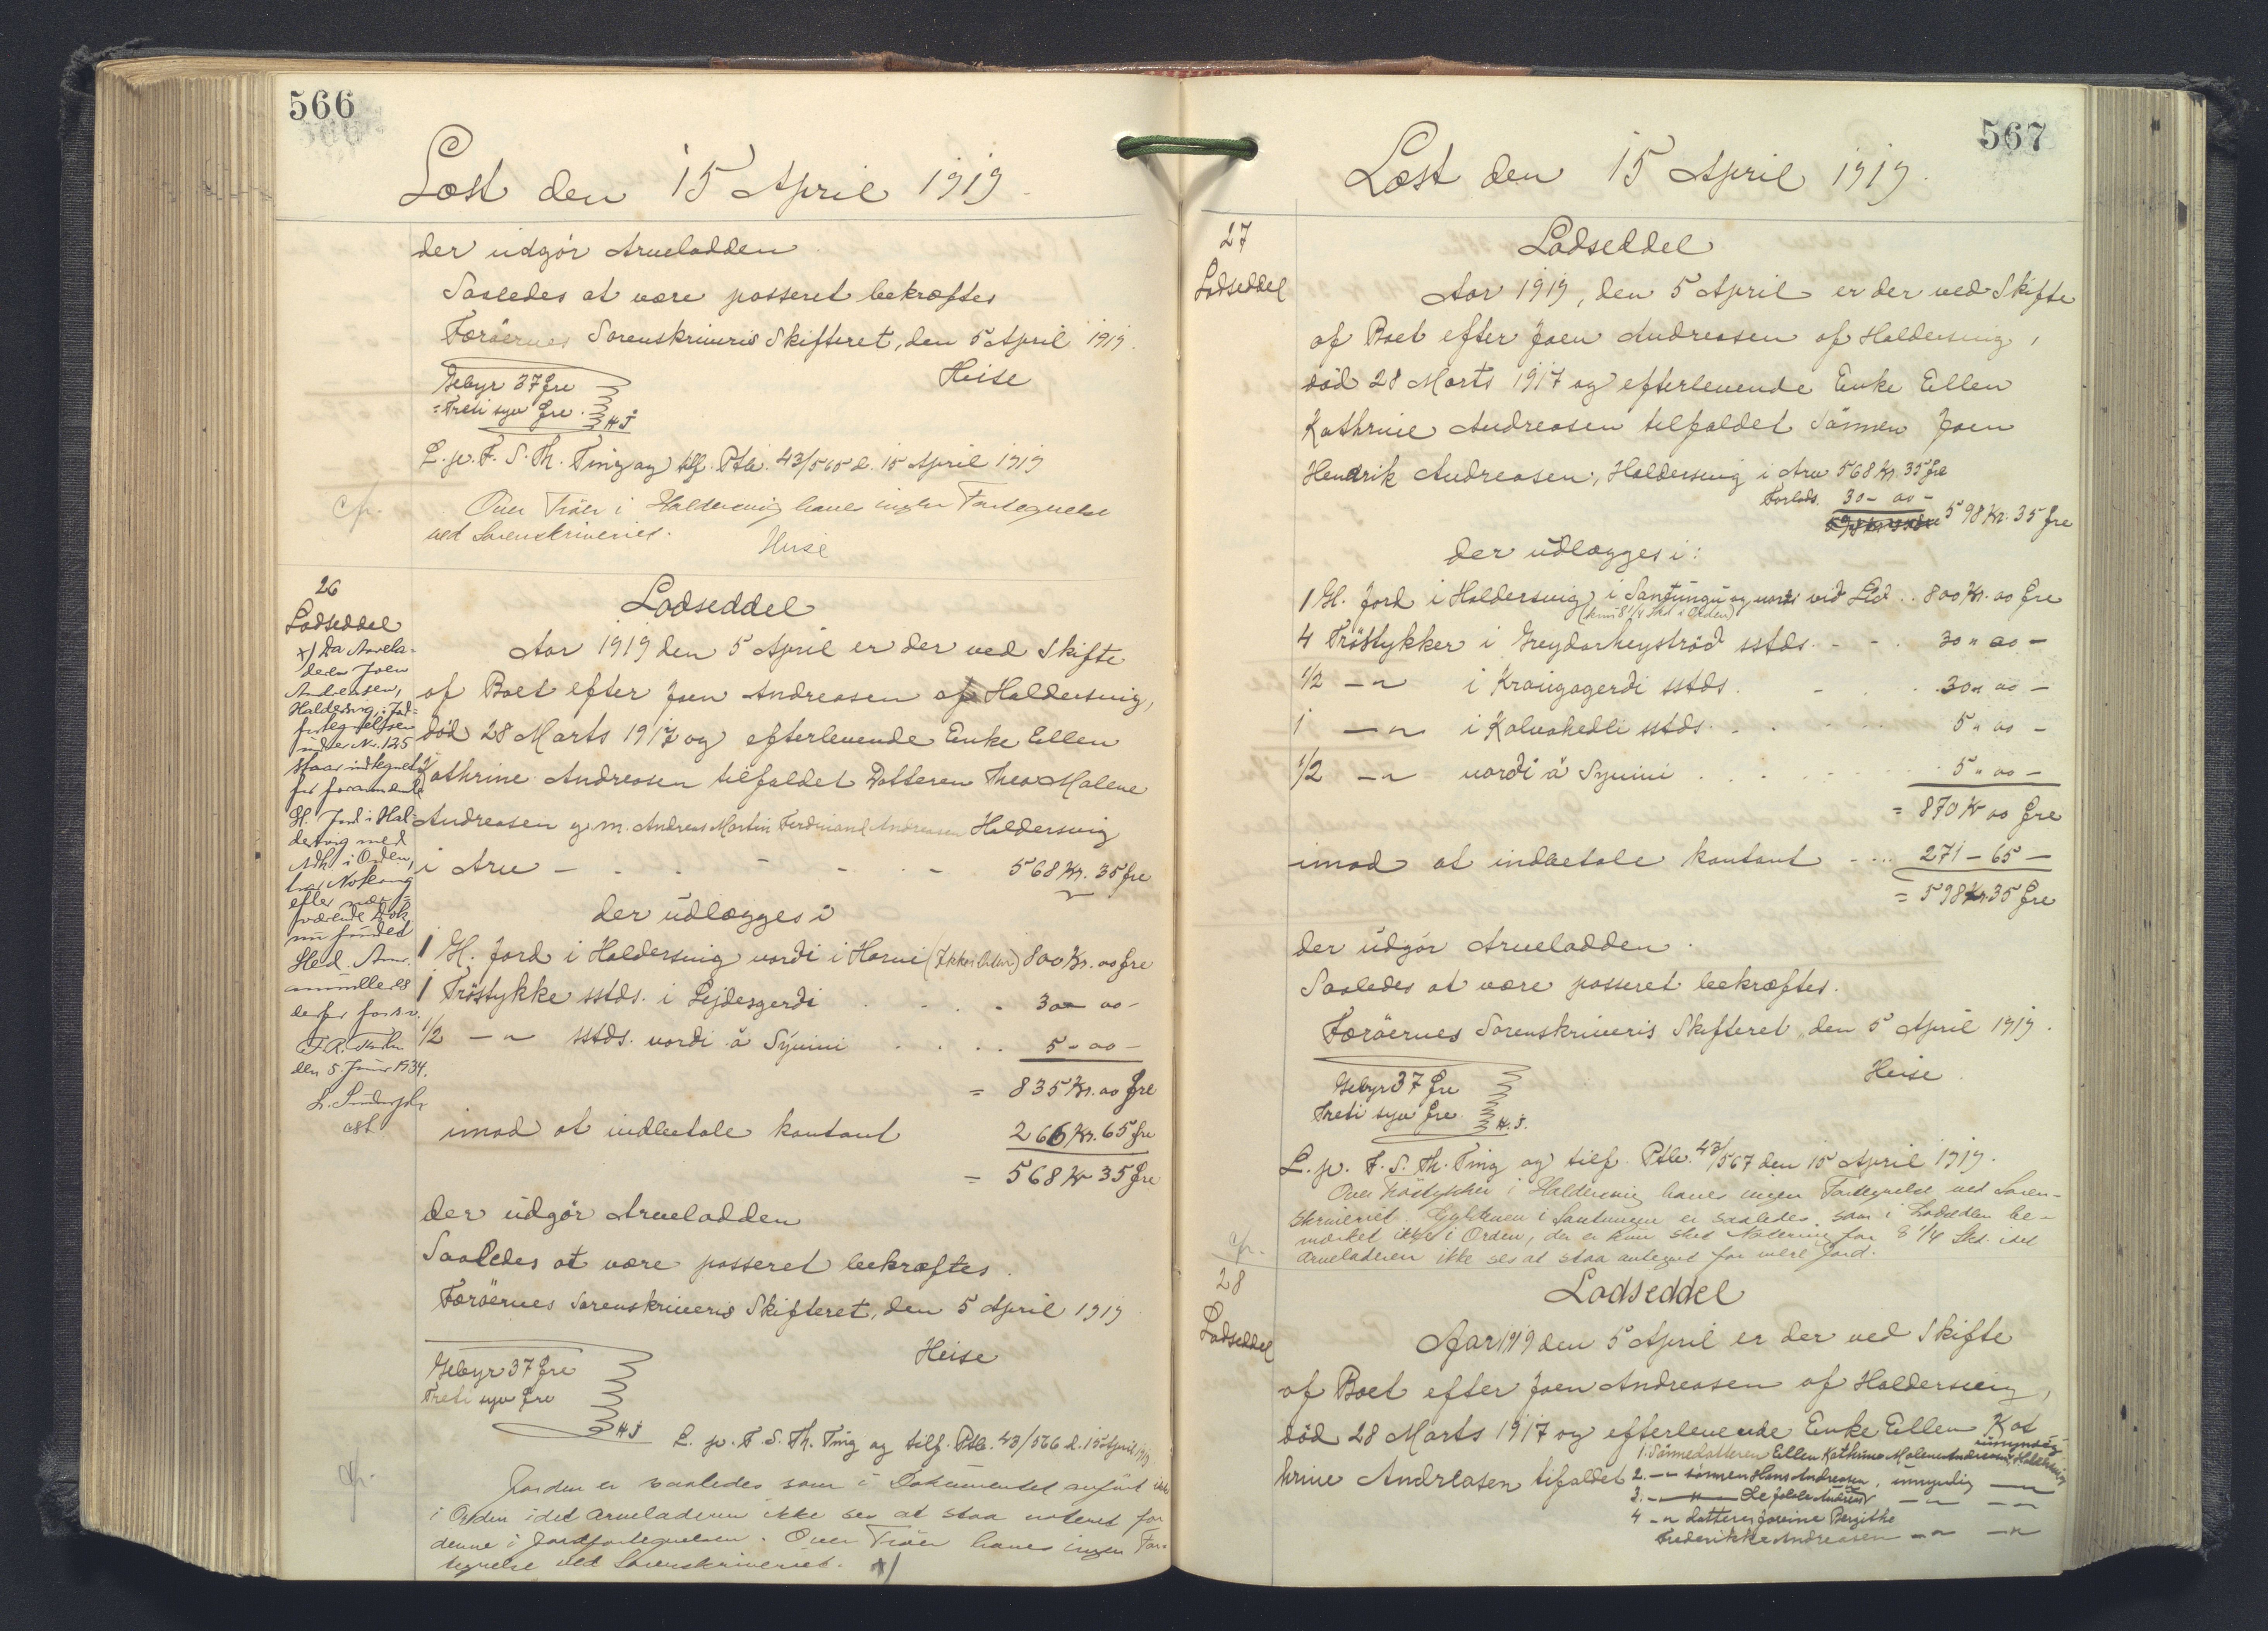 566
Læst den 15 April 1919.
der udgør Arvelodden
Saaledes at være passeret bekræftes
Færøernes Sorenskriveris Skifteret, den 5 April 1919.
Heise
Gebyr 37 Øre
= Treti syv Øre.
H J
L. p. F. S. Th. Ting og tilf. Ptb. 43/565 d. 15 April 1919
cfr.
Over Trøer i Haldersvig haves ingen Fortegnelse
ved Sorenskriveriet.
Heise
26
Lodseddel
x) Da Arvela-
deren Joen
Andreasen,
Haldersvig, i Jord-
fortegnelsen
under No. 125
staar indtegnet
for foranmeldte
Gl. Jord i Hal-
dersvig med
Adk. i Orden,
har Notering
efter nær-
værende Dok.
nu fundet
Sted. Anm.
annulleres
derfor forsv.
F. R. Tinghus
den 5. Juni 1934.
cst.
Lodseddel
Aar 1919 den 5 April er der ved Skifte
af Boet efter Joen Andreasen af Haldersvig,
død 28 Marts 1917 og efterlevende Enke Ellen
Kathrine Andreasen tilfaldet Datteren Thea Malene
Andreasen g. m. Andreas Martin Ferdinand Andreasen Haldersvig
i Arv - - - - - 568 Kr. 35 Øre
der udlægges i
1 Gl. Jord i Haldersvig norði i Horni (Ikke i Orden) 800 Kr. 00 Øre
1 Trøstykke sstds. i Lejdesgerði . . . 30 - 00 -
1/2 - " - sstds. norði á Sýnini . . . . 5 - 00 -
= 835 Kr. 00 Øre
imod at indbetale kontant 266 Kr. 65 Øre
= 568 Kr 35 Øre
der udgør Arvelodden
Saaledes at være passeret bekræftes.
Færøernes Sorenskriveris Skifteret, den 5 April 1919
Heise
Gebyr 37 Øre
Treti syv Øre
H J
L. p. F. S. Th. Ting og tilf. Ptb. 43/566 d. 15 April 1919
cfr.
Jorden er saaledes som i Dokumentet anført ikke
i Orden idet Arveladeren ikke ses at staa noteret for
denne i Jordfortegnelsen. Over Trøer haves ingen For-
tegnelse ved Sorenskriveriet. x)
567
Læst den 15 April 1919.
27
Lodseddel
Lodseddel
Aar 1919, den 5 April er der ved Skifte
af Boet efter Joen Andreasen af Haldersvig,
død 28 Marts 1917 og efterlevende Enke Ellen
Kathrine Andreasen tilfaldet Sønnen Joen
Hendrik Andreasen, Haldersvig i Arv 568 Kr. 35 Øre
Forlods. 30 - 00 -
598 Kr. 35 Øre
der udlægges i:
1 Gl. Jord i Haldersvig i Santungu og norði við Lið . . 800 Kr. 00 Øre
(kun 8 1/4 Skd i Orden)
4 Trøstykker i Greydarheystrøð sstds. - - . 30 " 00 -
1/2 - " - i Kraugagerði sstds. . . . 30 " 00 -
1 - " - i Kalvahedli sstds. . . . . 5 " 00 -
1/2 - " - norði á Sýnini . . . . . 5 " 00 -
= 870 Kr 00 Øre
imod at indbetale kontant - . . . 271 - 65 -
= 598 Kr. 35 Øre
der udgør Arvelodden.
Saaledes at være passeret bekræftes.
Færøernes Sorenskriveris Skifteret, den 5 April 1919.
Heise.
Gebyr 37 Øre
Treti syv Øre.
H. J.
L. p. F. S. Th. Ting og tilf. Ptb. 43/567 den 15 April 1919.
Over Trøstykker i Haldersvig haves ingen Fortegnelse ved Soren-
skriveriet. Gyldenen i Santungu er saaledes som i Lodsedlen be-
mærket ikke i Orden, der er kun sket Notering for 8 1/4 Skd. idet
Arveladeren ikke ses at staa antegnet for mere Jord.
cfr.
28
Lodseddel
Lodseddel
Aar 1919 den 5 April er der ved Skifte
af Boet efter Joen Andreasen af Haldersvig,
død 28 Marts 1917 og efterlevende Enke Ellen Kat
hrine Andreasen tifaldet
1. Sønnedatteren Ellen Kathrine Malene Andreasen, Haldersvig umyndig
2. - " sønnen Hans Andreasen, umyndig - " -
3. - " - Andreas - " - - " -
4 - " datteren Joevine Bergithe
Frederikke Andreasen - " - - " -